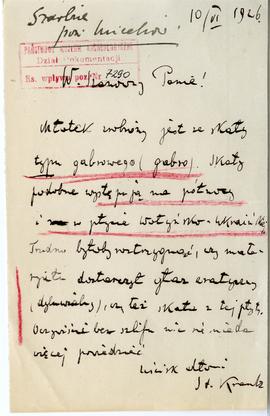 10/VI 1926
pow. Miechów
PAŃSTWOWE MUZEUM ARCHEOLOGICZNE
Dział Dokumentacji
Ks. wpływu poz. Nr 7290
W. Szanowny Panie!
Młotek zrobiony jest ze skały
typu gabrowego (gabro). Skały
podobne występują na półwysp
i w płycie Wołyńsko-Ukraińsk
Trudno byłoby rozstrzygnąć, czy mate-
ryału dostarczył głaz eratyczny
(dyluwialny), czy też skała z tej płyty.
Oczywiście bez szlifu nic nie można
więcej powiedzieć.
St. Kreutz